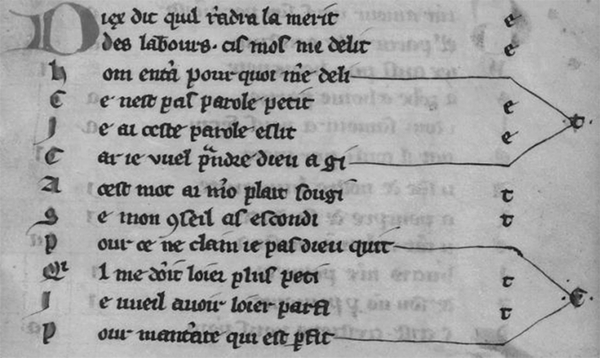 Diex dit quil r̄adra la merit e
des labours. cis mos me delit e
h om ent̄a pour quoi me deli
C e nest pas parole petit e t
J e ai ceste parole eslit e
C ar ie vuel p̄ndre dieu a gi
A cest mot ai plait sougi t
S e mon ꝯseil as escondi t
p our ce ne claim ie pas dieu quit
l me doit loier plus peti t e
I e vueil avoir loier parfi t
p our qui est